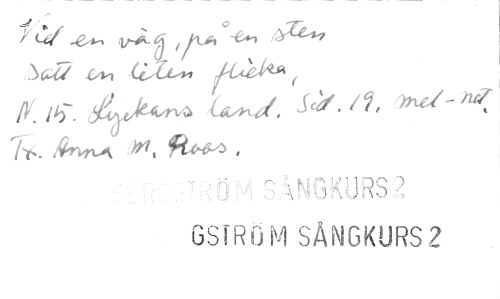 Vid en väg, på en sten
Satt en liten flicka,
N. 15. Lyckans land. Sid. 19. mel-not.
Tx. Anna M. Roos.
BERGSTRÖM SÅNGKURS 2
GSTRÖM SÅNGKURS 2